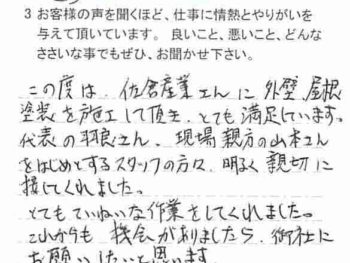 3 お客様の声を聞くほど、仕事に情熱とやりがいを
与えて頂いています。良いこと、悪いこと、どんな
ささいな事でもぜひ、お聞かせ下さい。
この度は、佐倉産業さんに外壁、屋根
塗装を施工して頂き、とても満足しています。
代表の羽良さん、現場親方の山本さん
をはじめとするスタッフの方々、明るく親切に
接してくれました。
とてもていねいな作業をしてくれました。
これからも機会がありましたら、御社に
お願いしたいと思います。